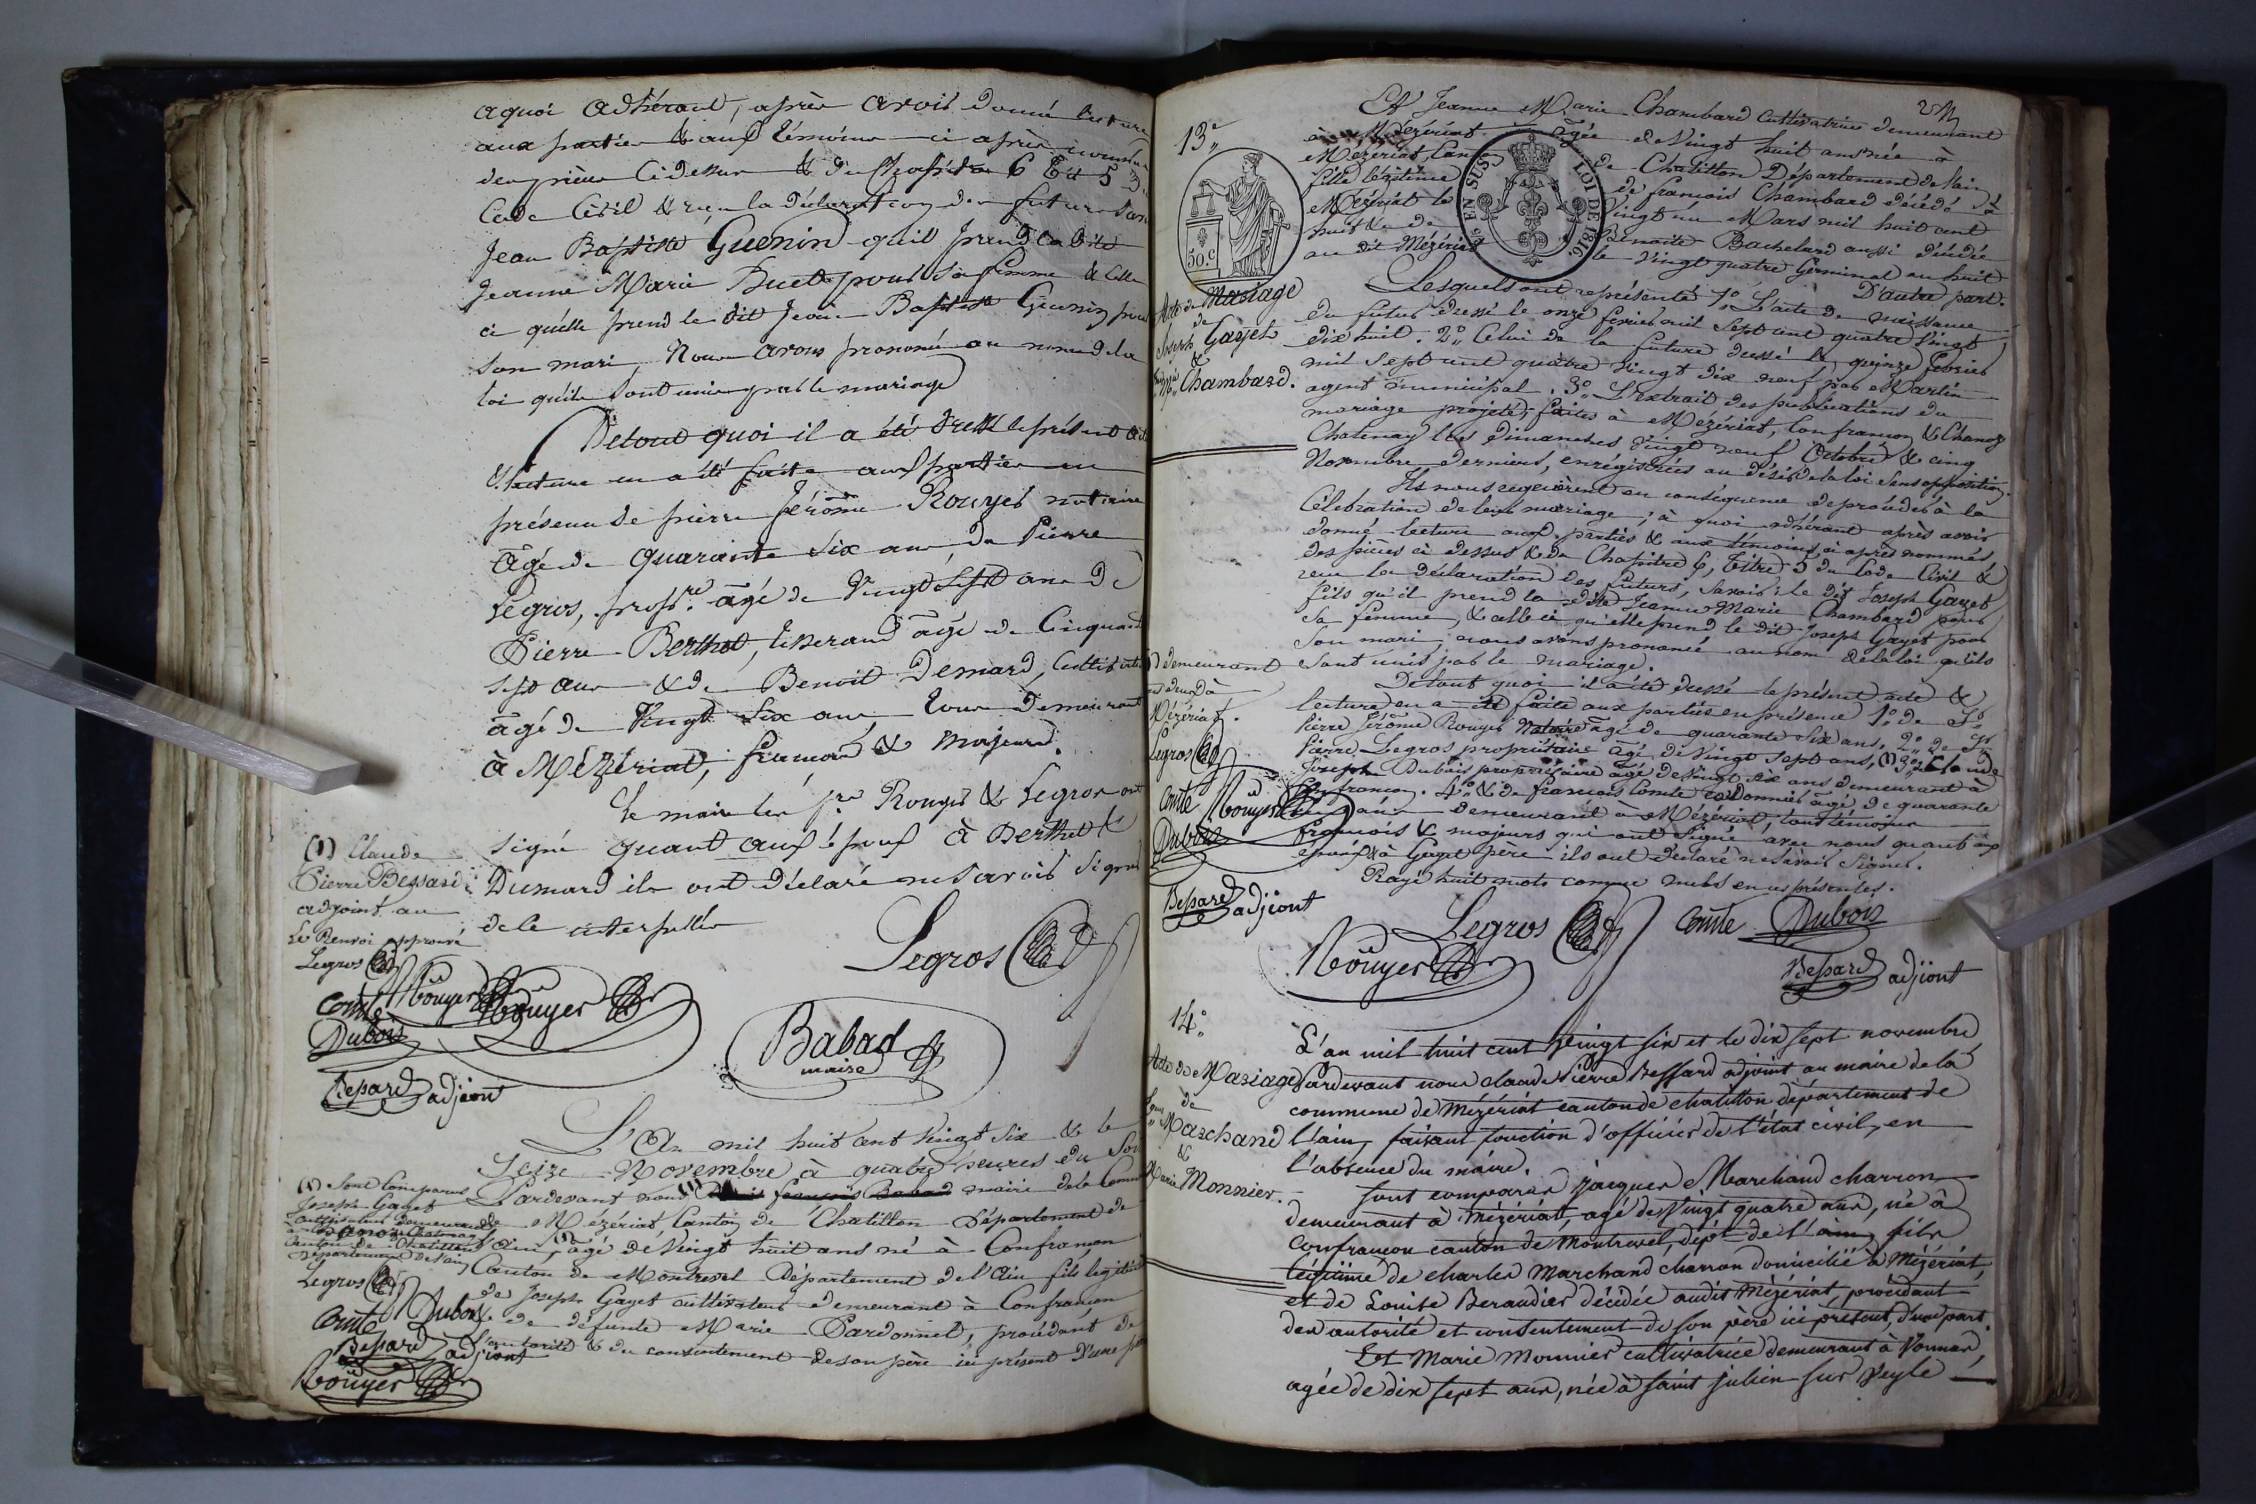 aquoi adhérant, après avoir donné lecture
aux parties & aux témoins ci après nommés
des pièces ci dessus & du Chapitre 6 Tit 5 du
Code Civil & reçu la déclaration des futurs
Jean Baptiste Guenin quil prend la dite
Jeanne Marie Buet pour sa femme & celle
ci quelle prend le dit Jean Baptiste Guenin pour
son mari, Nous avons prononcé au nom de la
loi quils sont unis par le mariage
Detout quoi il a été dressé le présent acte
lecture en a été faite aux parties en
présence de pierre Jérôme Rouyer notaire
agé de quarante six ans, de Pierre
Legros, prop.re agé de vingt sept ans de
Pierre Berthet, tisserand agé de Cinquante
sept ans & de Benoit Demard, Cultivateur
agé de Vingt six ans, tous demeurant
à Mézériat, francais & majeurs.
Le maire les srs Rouyer & Legros ont
signé quant aux époux à Berthet &
Dumard ils ont déclaré ne savoir signer
de ce interpellés
Legros
Rouyer
Babad
maire
(1) Claude
Pierre Bessard
adjoint au
Le Renvoi approuvé
Legros
Comte Rouyer
Dubois
Bessard adjiont
L'An mil huit cent vingt six & le
Seize Novembre à quatre heures du Soir
Pardevant nous (1) françois Babad maire dela Commune
de Mézériat, Canton de Chatillon Département de
l'ain, (1) agé de Vingt huit ans né à Confrançon
Canton de Montrevel Département de l'Ain fils légitime
de Joseph Gayet cultivateur demeurant à Confrançon
& de défunte Marie Pardonnet, procédant de
l'autorité & du consentement de son père ici présent D'une part
(1) Sont Comparus
Joseph Gayet
cultivateur demeurant
à Chanoz Chatenay
Canton de Chatillon
Département de l'ain
Legros
Comte Dubois
Bessard adjiont
Rouyer
13.o
50.c
EN SUS LOI DE 1816
Acte de Mariage
de
Joseph Gayet
&
Chambard.
Et Jeanne Marie Chambard Cultivatrice demeurant
à Mézériat agée de Vingt huit ans née à
Mézériat, Canton de Chatillon Département de l'ain
fille légitime de françois Chambard décédé à
Mézériat le Vingt un Mars mil huit cent
huit & de Benoite Bachelard aussi décédée
au dit Mézériat le Vingt quatre Germinal an huit
D'autre part.
Lesquels ont représenté 1.o L'acte de naissance
du futur dressé le onze fevrier mil sept cent quatre vingt
dix huit. 2.o Celui de la future dressé le quinze fevrier
mil sept cent quatre vingt dix neuf par Martin
agent municipal. 3.o L'extrait des publications du
mariage projeté, faites à Mézériat, Confrançon & Chanoz
Chatenay les Dimanches vingt neuf Octobre & cinq
Novembre derniers, enrégistrées au désir de la loi sans opposition.
Ils nous requièrent en conséquence de procéder à la
Célébration de leur mariage; à quoi adhérant après avoir
donné lecture aux parties & aux témoins ci après nommés,
des pièces ci dessus & du Chapitre 6, Titre 5 du Code Civil &
reçu la déclaration des futurs, savoir: le dit Joseph Gayet
fils qu'il prend la dite Jeanne Marie Chambard pour
sa femme, & celle ci qu'elle prend le dit Joseph Gayet pour
son mari; nous avons prononcé au nom de la loi qu'ils
sont unis par le mariage.
Detout quoi il a été dressé le présent acte &
lecture en a été faite aux parties en présence 1.o de Sr
Pierre Jérôme Rouyer Notaire agé de quarante six ans, 2.o de Sr
Pierre Legros propriétaire agé de Vingt sept ans, (1) 3.o Claude
Joseph Dubois propriétaire agé de Vingt six ans demeurant à
Confrançon. 4.o & de francois Comte cordonnier agé de quarante
ans demeurant à Mézériat, tous témoins
francois & majeurs qui ont signé avec nous quant aux
époux & à Gayet père ils ont déclaré ne savoir signer.
Rayé huit mots comme nuls en ces présentes.
(1) demeurant
tous deux à
Mézériat.
Legros
Comte Rouyer
Dubois
Bessard adjiont
Legros Comte Dubois
Rouyer
Bessard adjiont
14.o
Acte de Mariage
de
Marchand
&
Marie Monnier.
L'an mil huit cent vingt six et le dix sept novembre
Pardevant nous claude Pierre Bessard adjoint au maire de la
commune de Mézériat canton de chatillon département de
l'ain, faisant fonction d'officier de l'état civil, en
l'absence du maire.
sont comparus jacques Marchand charron
demeurant à Mézériat, agé de vingt quatre ans, né à
Confrançon canton de Montrevel, dépt de l'ain, fils
légitime de charles Marchand charron domicilié à Mézériat,
et de Louise Beraudier décédée audit Mézériat, procédant
de autorité et consentement de son père ici présent, d'une part.
Et Marie Monnier cultivatrice demeurant à Vonnas,
agée de dix sept ans, née à saint julien sur Veyle